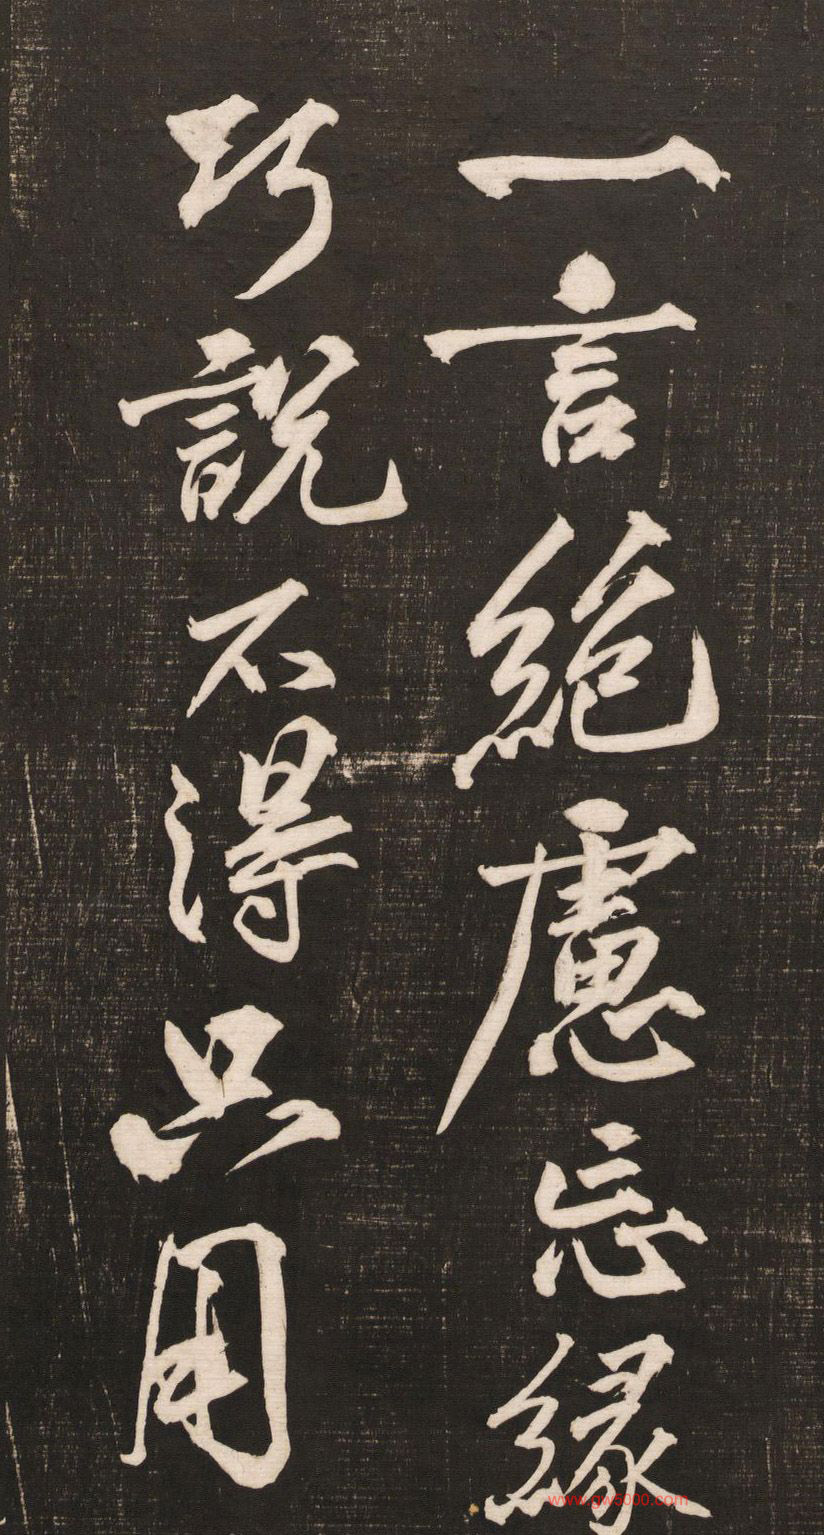 一言絕慮忘緣
巧說不得只用
www.gw5000.com